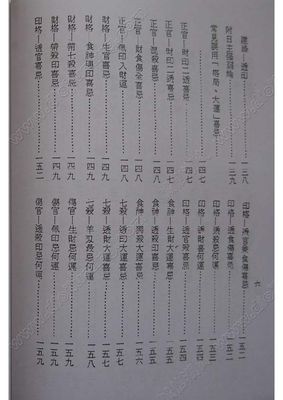 建祿—透印……一三八
附日主強弱論……一三九
常見誤用「格局、大運」喜忌
正官—財印二透喜忌……一四七
正官—混殺喜忌……一四八
正官—財食傷全喜忌……一四八
正官—佩印入財運……一四八
財格—生官喜忌……一四九
財格—食神 印喜忌……一四九
財格—帶七殺喜忌……一四九
財格—帶殺印喜忌……一四九
印格—透官喜忌……一五二
六
印格—透官兼食傷喜忌……一五二
印格—透食傷喜忌……一五二
印格—透殺忌何運……一五三
印格—透財喜何運……一五四
食神—生財大運喜忌……一五五
食神—透殺大運喜忌……一五五
食神—獨殺大運喜忌……一五六
七殺—透印大運喜忌……一五七
七殺—透財大運喜忌……一五七
七殺—羊刃最忌何運……一五八
傷官—生財忌何運……一五九
傷官—佩印忌何運……一五九
傷官—透殺印忌何運……一五九